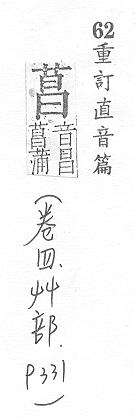 62重訂直音篇
菖
音昌
菖蒲
(卷四.艸部.P331)